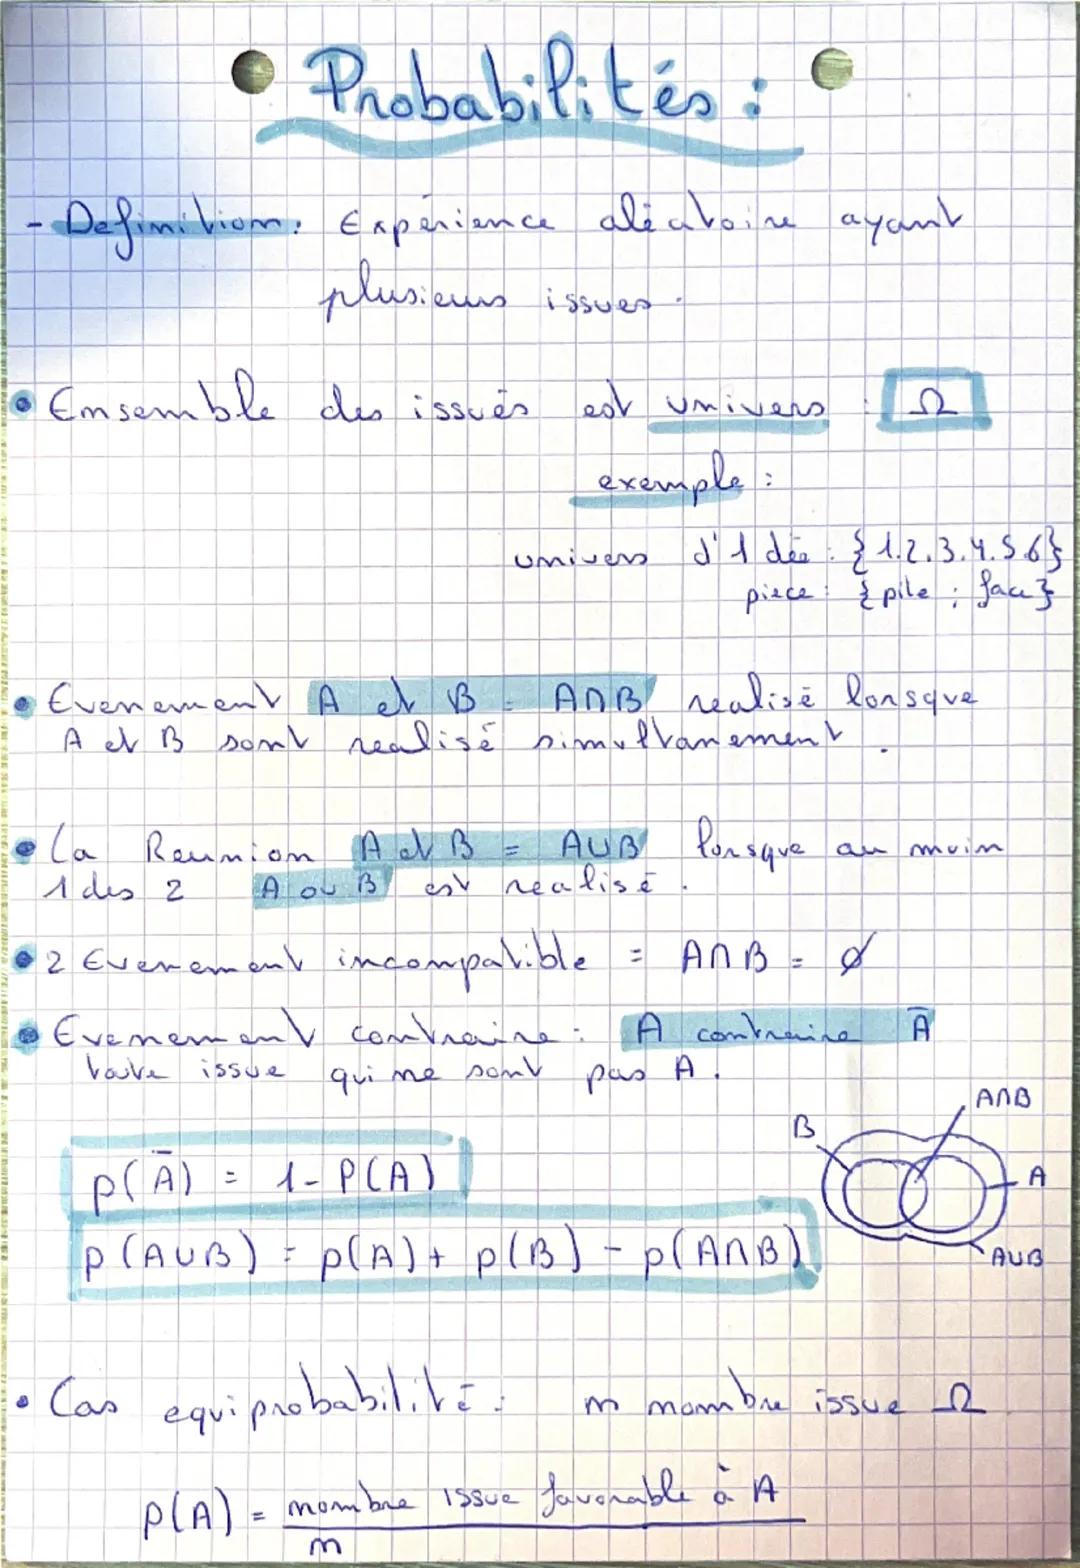 Probabilités :
- Definition: Expérience aléatoire ayant
plusieurs issues.
• Ensemble des issues est univers : Ω
exemple :
univers d'1 dée : {1.2.3.4.5.6}
piece : {pile ; face}
• Evenement A et B = A∩B realisé lorsque
A et B sont realisé simultanement.
• La Reunion A et B = A∪B lorsque au moin
1 des 2 A ou B est realisé.
• 2 Evenement incompatible = A∩B = ∅
• Evenement contraire : A contraire Ā
toute issue qui ne sont pas A.
A∩B
B
p(Ā) = 1 - P(A)
A
p(A∪B) = p(A) + p(B) - p(A∩B)
A∪B
• Cas equiprobabilité : n nombre issue Ω
p(A) = nombre issue favorable à A
n